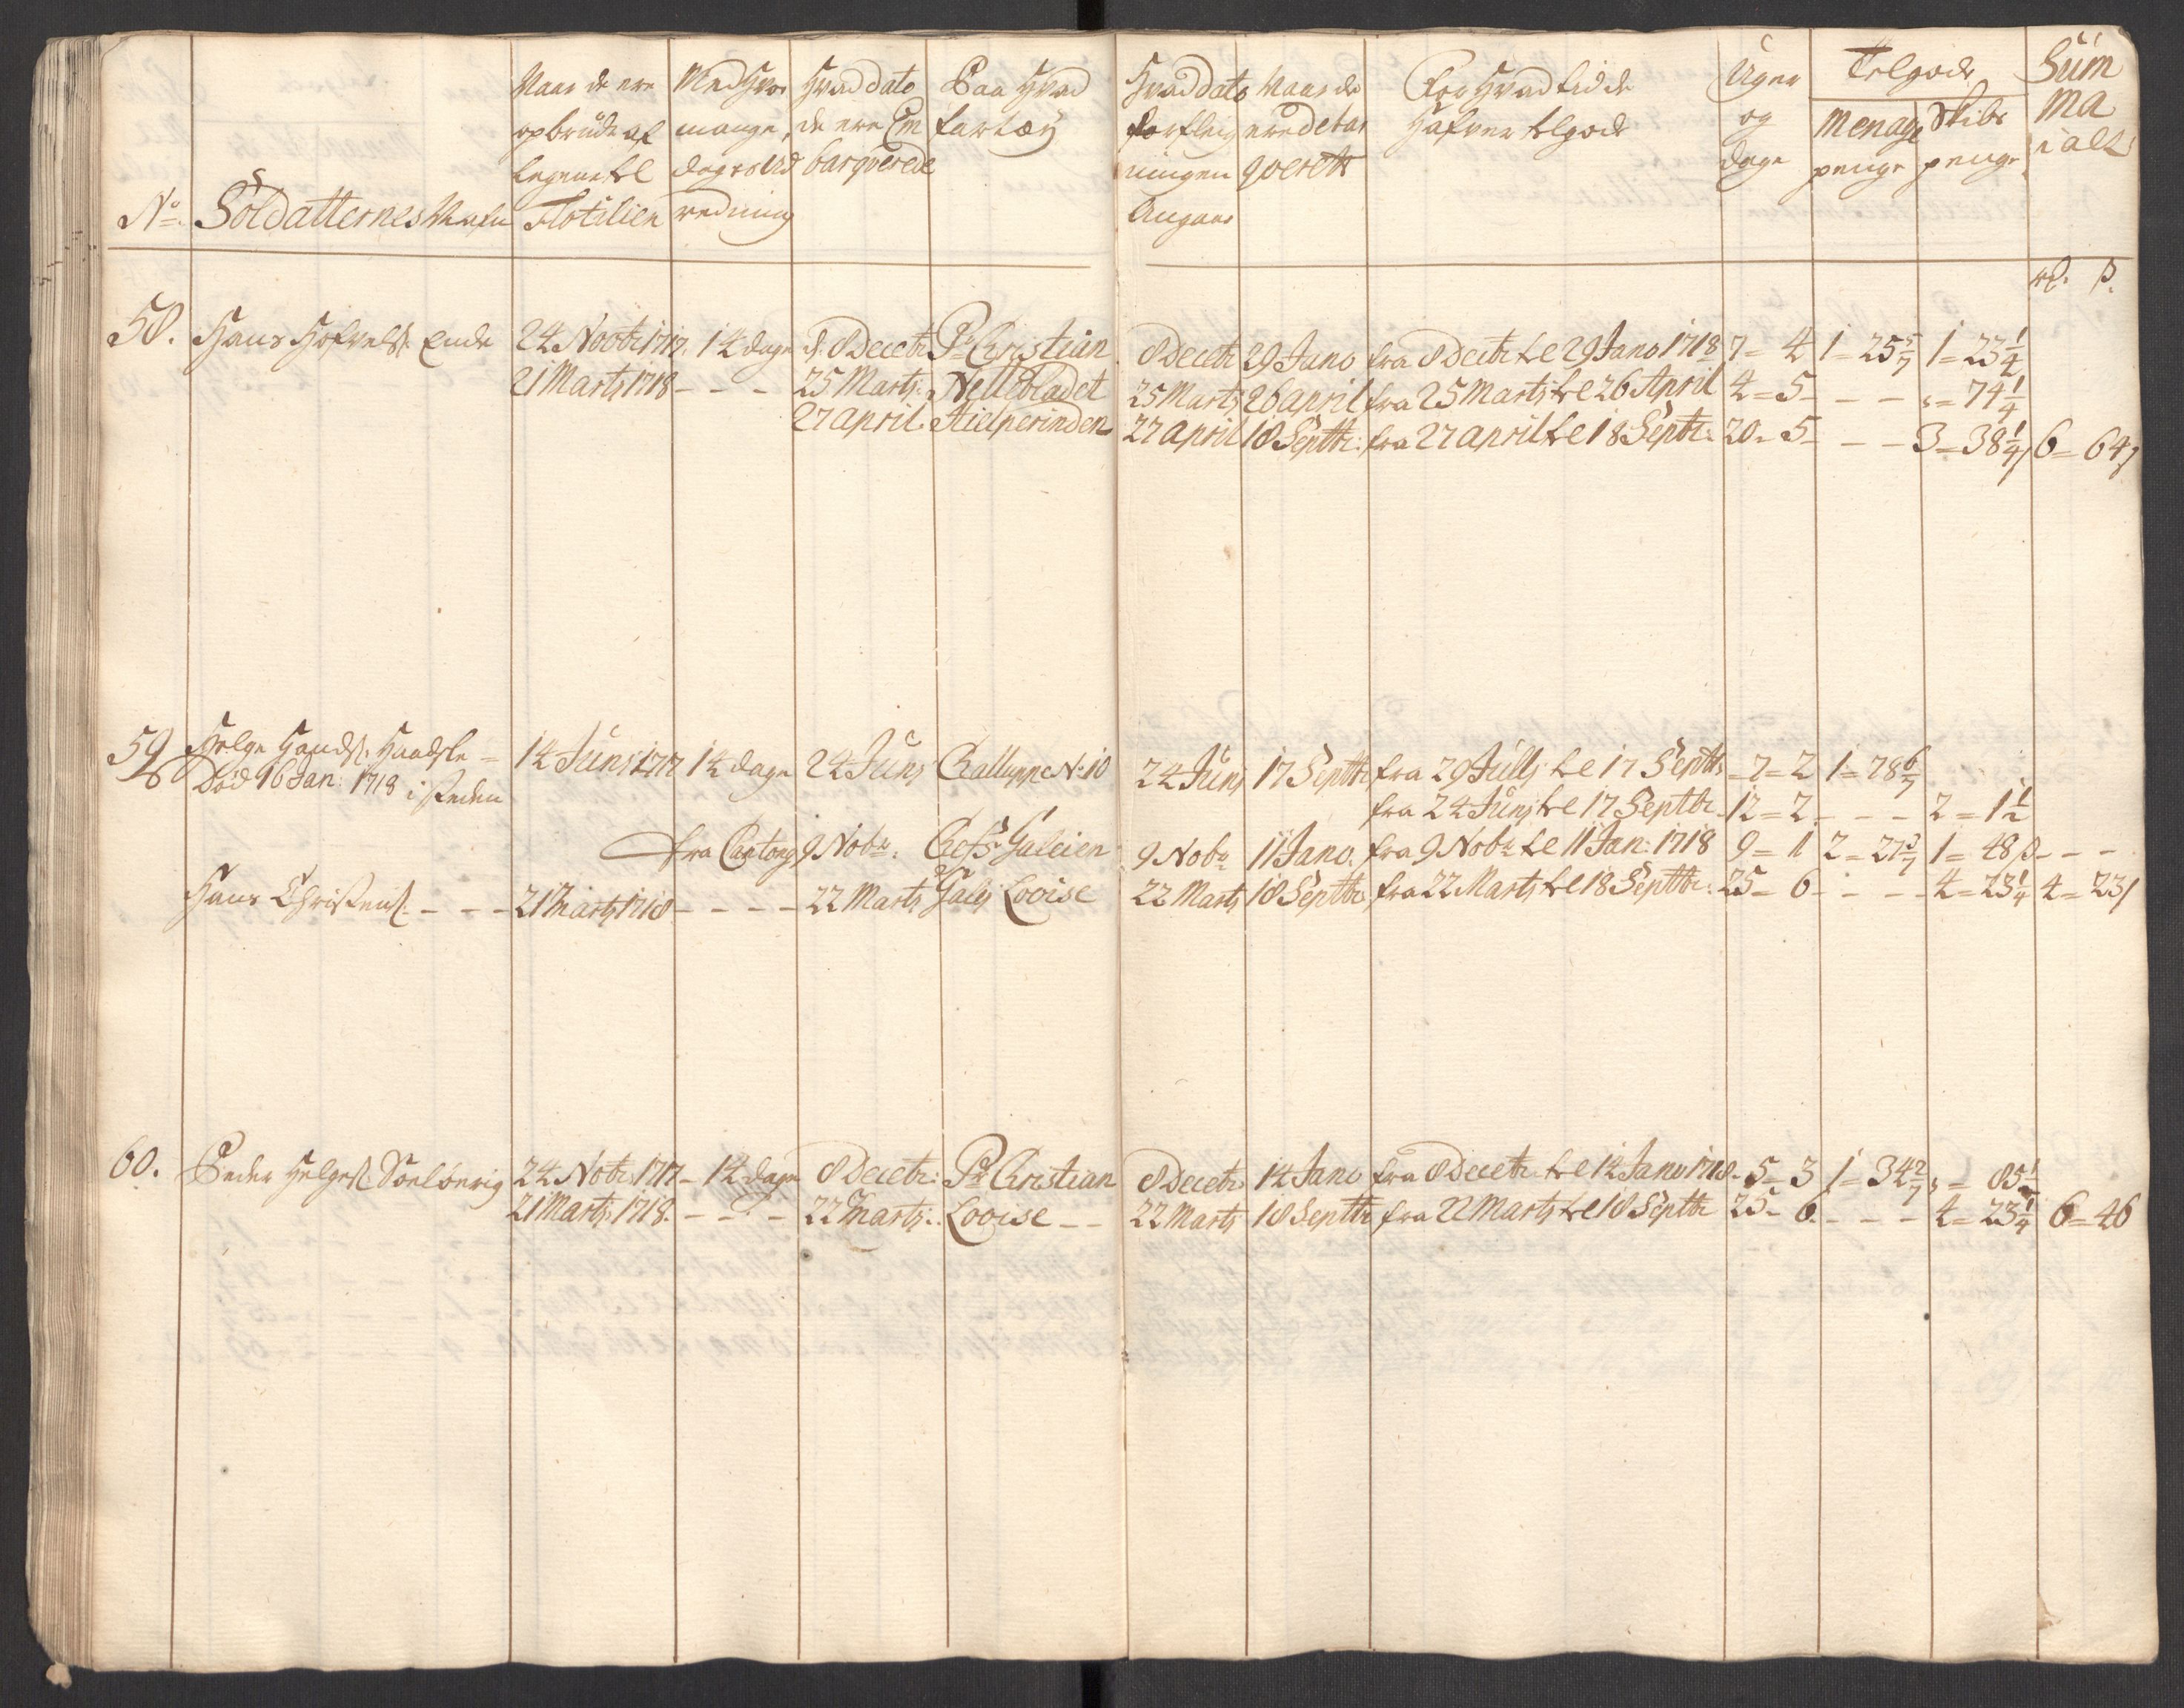 No Soldatternes Nafn
Naar de ere opbrude af Legene til Flotilien
Med Hvor mange dages Ud redning
Hvad dato de ere Em barqverede
Paa Hvad fartøÿ
Hvad dato forfleig ningen Angaar
Naar de ere debar qveret
For Hvad tid de Hafver tilgode
Uger og dage
Tilgode
Menage penge
Skibs penge
Sum ma i alt
rd. ß.
58. Hans Ende 24 Novbr 1717. 14 dage d. 8 Decebr Pr Christian 8 Decebr 29 Jano fra 8 Decebr til 29 Jano 1718 7 = 4 1 = 25 5/7 1 = 23 1/4
21 Marts 1718 - - - 25 Marts: Nellebladet 25 Marts 26 april fra 25 Marts til 26 April 4 = 5 - - - = 74 1/4
27 april. Hielperinden 27 april 18 Septbr: fra 27 april til 18 Septbr: 20 - 5 - - - 3 = 38 1/4 6 = 64
59 Helge 14 Junj 1717 14 dage 24 Junj Challuppe No 10 24 Junj 17 Septbr fra 29 Julij til 17 Septbr - 7 = 2 1 = 78 6/7
Død 16 Jan: 1718 i steden
fra 24 Junj til 17 Septbr 12 = 2 - - - 2 = 1 1/2
fra 9 Nobr. Chefs Galeien 9 Nobr 11 Jano. fra 9 Nobr til 11 Jan: 1718 9 = 1 2 = 27 3/7 1 = 48 ß - - -
Hans Christens: - - - 21 Marts 1718 - - - - 22 Marts Galej Lovise 22 Marts 18 Septbr fra 22 Marts til 18 Septbr: 25 - 6 - - - - 4 = 23 1/4 4 = 23
60. Peder Helges: 24 Nobr: 1717 - 14 dage 8 Decebr: Pr Christian 8 Decebr 14 Jano fra 8 Decebr. til 14 Jano 1718 - 5 = 3 1 = 34 2/7 = 85 1/2
21 Marts: 1718. - - - 22 Marts: Lovise - - 22 Marts 18 Septbr fra 22 Marts til 18 Septbr 25 - 6 - - - - 4 = 23 1/4 6 = 46